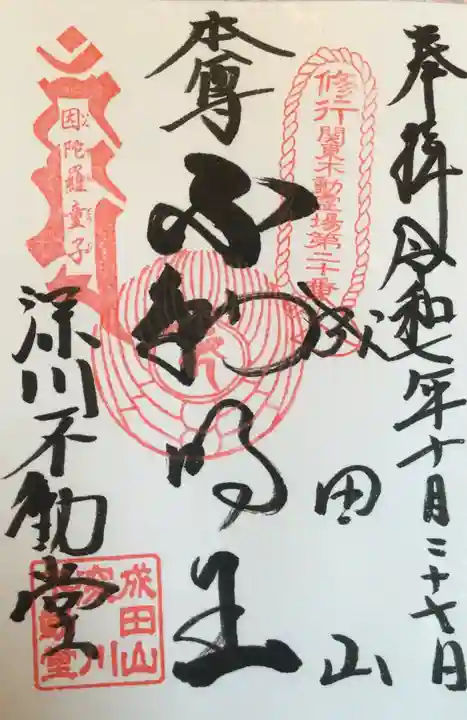 奉拝 令和七年十月二十七日
修行
関東不動霊場第二十番
成田山
本尊 不動明王
因陀羅童子
深川不動堂
成田山
深川
不動堂